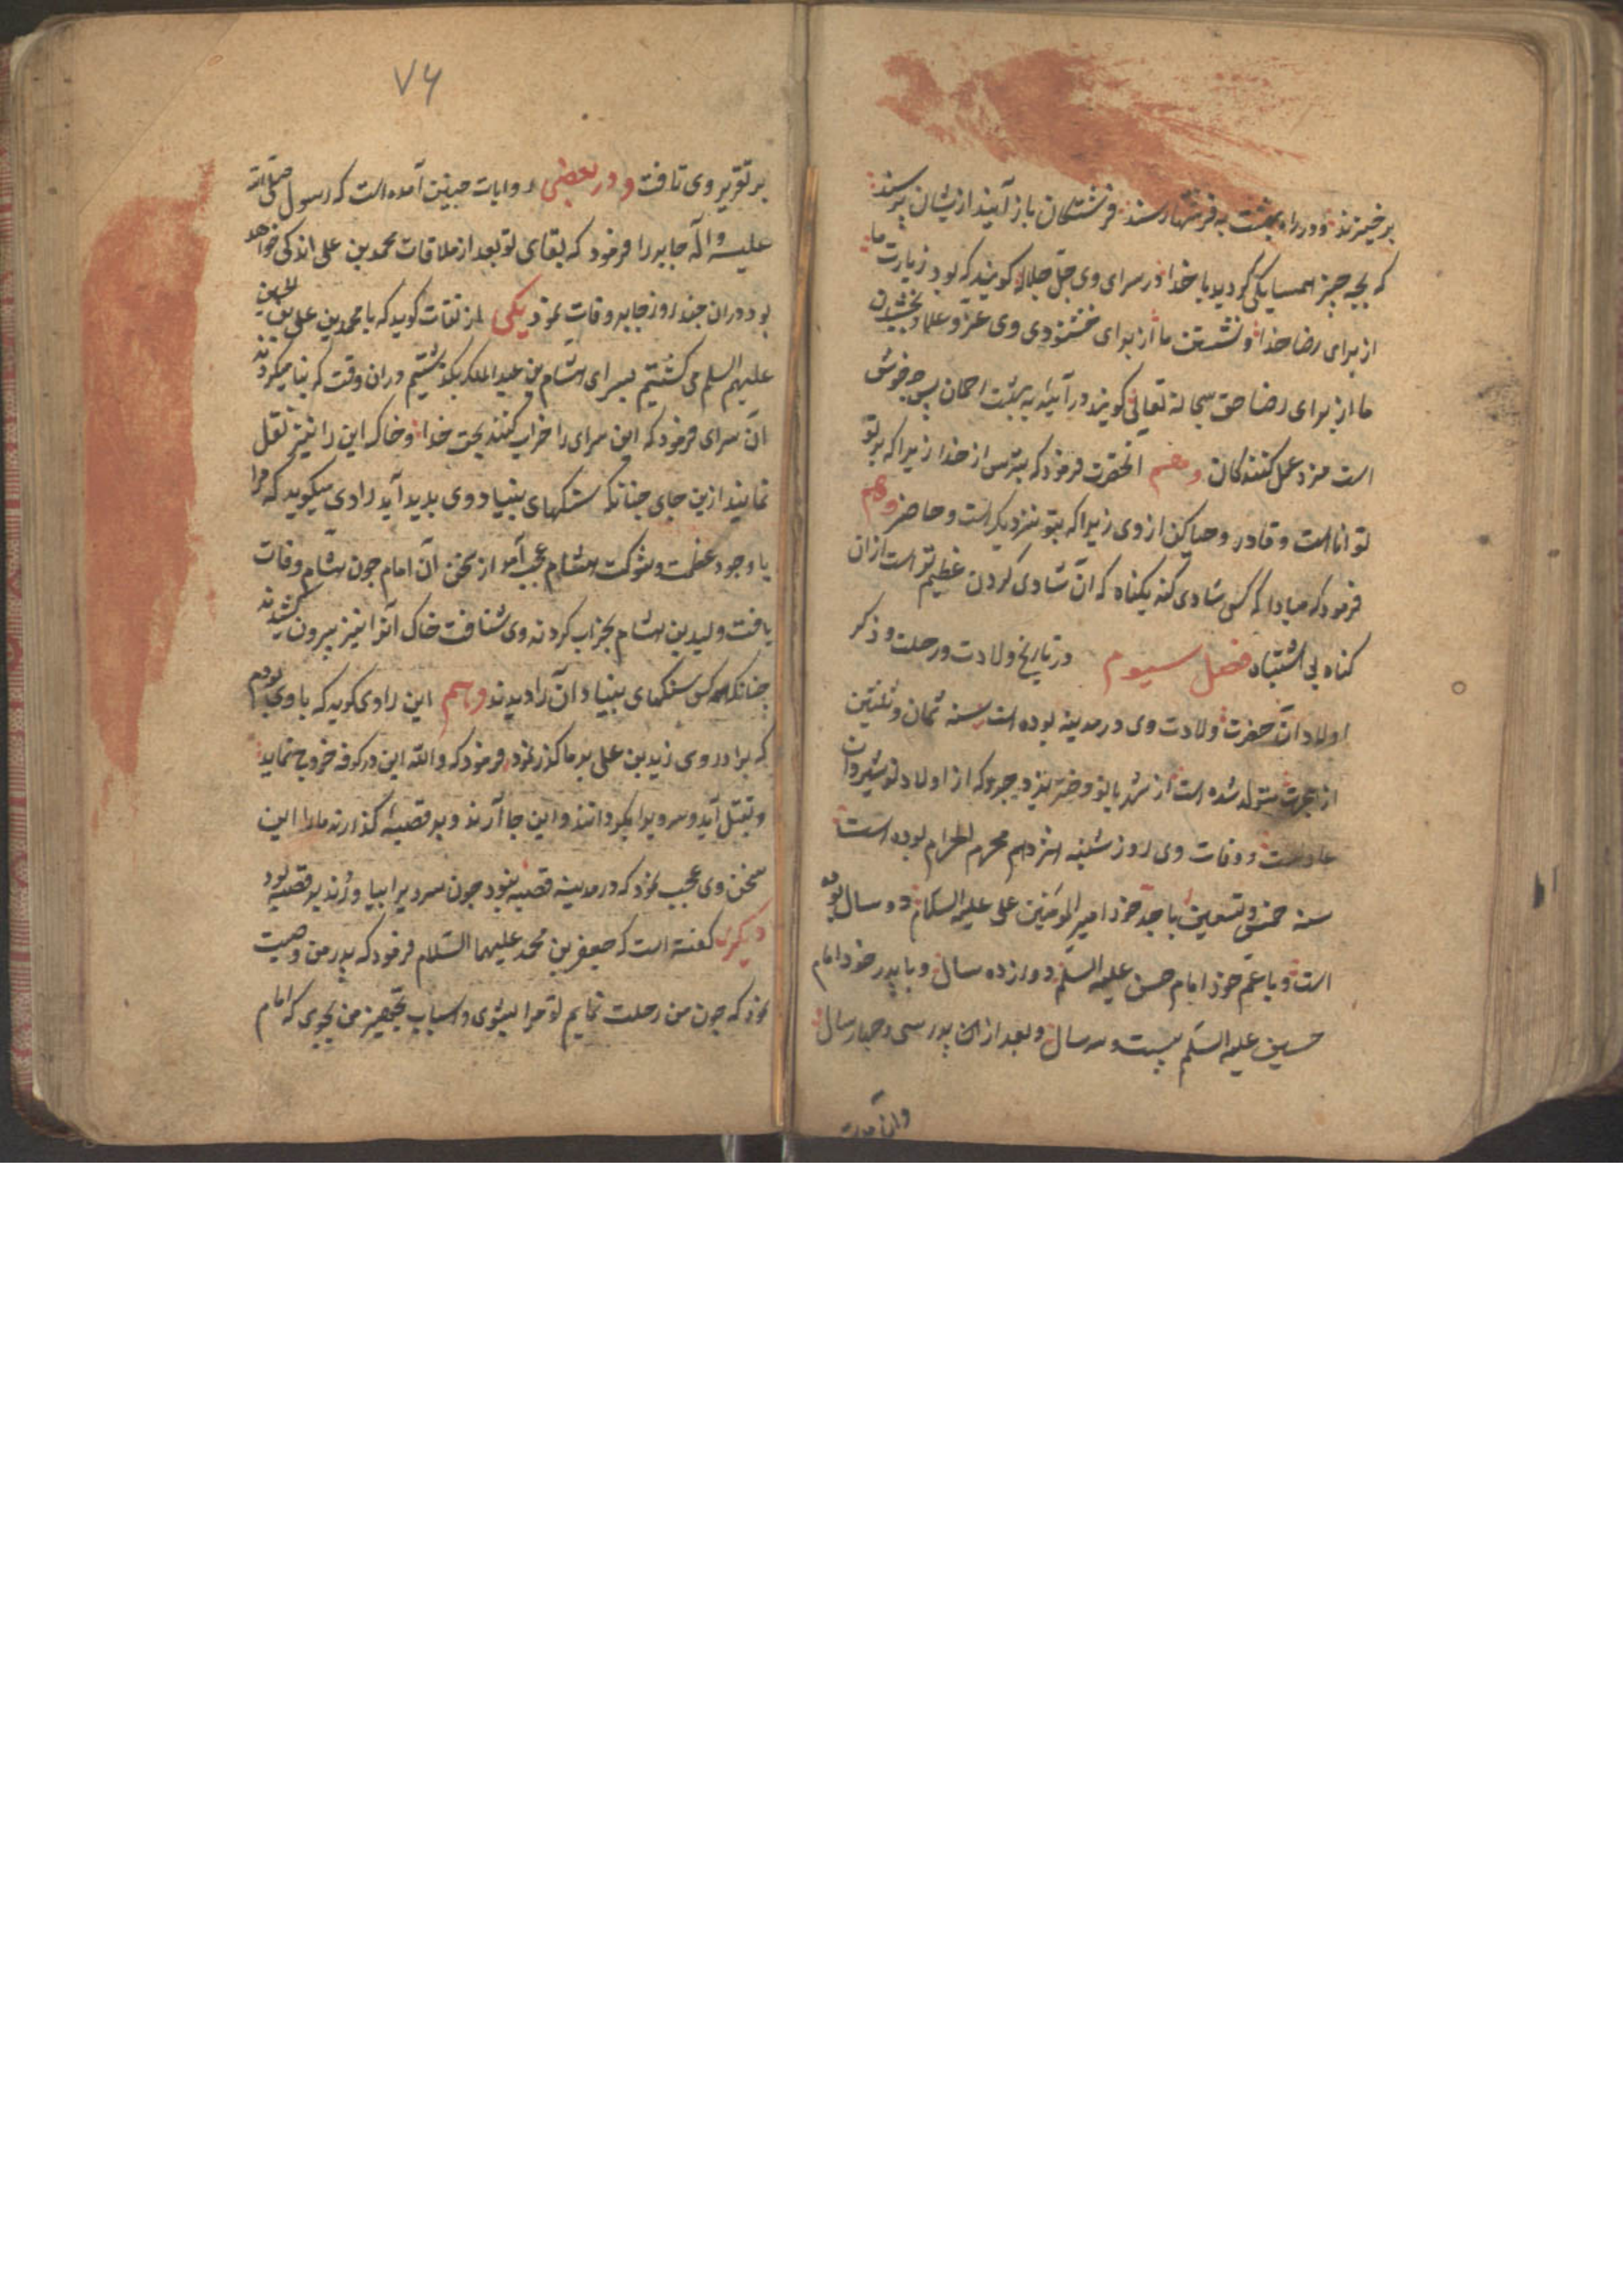 برخیزند و در راه بهشت به فرشتها رسند فرشتکان باز آیند از یشان پرسند
که بچه چیز همسایکی کردید با خدا در سرای وی جل جلاله کویند که بود زیارت ما
از برای رضا خدا و نشستن ما از برای خشنودی وی عز و علا و بخشیدن
ما از برای رضا حق سبحانه تعالی کویند در آیید به بهشت پس چه خوش
است مزد عمل کنندکان و هم انحضرت فرمود که بترس از خدا زیرا که بر تو
توانا است و قادر و حیا کن از وی زیرا که بتو نزدیک است و حاضر و هم
فرمود که مبادا که کسی شادی کند بکناه که آن شادی کردن عظیم تر است از ان
کناه بی اشتباه فصل سیوم در تاریخ ولادت و رحلت و ذکر
اولاد آن حضرت ولادت وی در مدینه بوده است سنه ثمان و ثلثین
از هجرت متولد شده است از شهربانو دختر یزدجرد که از اولاد نوشیروان
عادلست و وفات وی روز شنبه هژدهم محرم الحرام بوده است
سنه خمس و تسعین با جد خود امیر المومنین علی علیه السلام دو سال بوده
است و با عم خود امام حسن علیه السلم دوازده سال و با پدر خود امام
حسین علیه السلم بیست و سه سال و بعد از ان پدر سی و چهار سال
وان مدت
۷۶
بر تقریر وی تافت و در بعضی روایات چنین آمده است که رسول صلی الله
علیه و آله جابر را فرمود که بقای تو بعد از ملاقات محمد بن علی اندکی خواهد
بود دران چند روز جابر وفات نمود یکی از ثقات کوید که با محمد بن علی بن الحسین
علیهم السلم می کشتیم بسرای هشام بن عبد الملک بکذشتیم دران وقت که بنا میکردند
آن سرای فرمود که این سرای را خراب کنند بحق خدا و خاک این را نیز نقل
نمایند ازین جای چنانکه سنکهای بنیاد وی پدید آید راوی میکوید که مرا
با وجود عظمت و شوکت هشام عجب آمد از سخن آن امام چون هشام وفات
یافت ولید بن هشام بخراب کردن وی شتافت خاک آنرا نیز بیرون کشیدند
چنانکه همه کس سنکهای بنیاد آن را دیدند و هم این راوی کوید که با وی بودم
که برادر وی زید بن علی بر ما کذر نمود فرمود که والله این در کوفه خروج نماید
و بقتل آید و سر ویرا بکردانند و این جا آرند و بر قصبه کذارند مارا این
سخن وی عجب نمود که در مدینه قصبه نبود چون سر ویرا بیاوردند بر قصبه بود
دیکری کفته است که جعفر بن محمد علیهما السلام فرمود که پدر من وصیت
نمود که چون من رحلت نمایم تو مرا بشوی و اسباب تجهیز من بجوی که امام